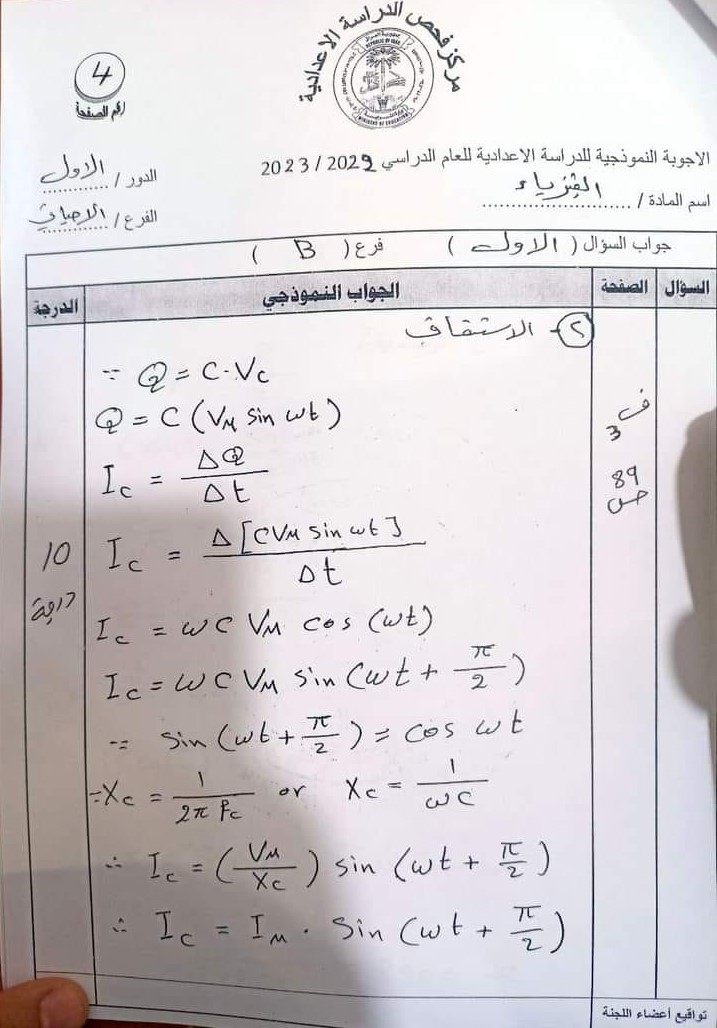 مركز فحص الدراسة الاعدادية
REPUBLIC OF IRAQ
MINISTRY OF EDUCATION
4
رقم الصفحة
الاجوبة النموذجية للدراسة الاعدادية للعام الدراسي 2022 / 2023
الدور / الاول
اسم المادة / الفيزياء
الفرع / الاحيائي
جواب السؤال ( الاول ) فرع ( B )
السؤال الصفحة الجواب النموذجي الدرجة
٢ - الاشتقاق
∵ Q = C·Vc
Q = C (VM sin ωt)
ف 3
Ic = ΔQ / Δt
89 ص
Ic = Δ [CVM sin ωt] / Δt
10 درجة
Ic = ω C VM cos (ωt)
Ic = ω C VM sin (ωt + π/2)
∵ sin (ωt + π/2) = cos ωt
∵ Xc = 1 / 2π fc or Xc = 1 / ωC
∴ Ic = (VM / Xc) sin (ωt + π/2)
∴ Ic = IM · sin (ωt + π/2)
تواقيع أعضاء اللجنة